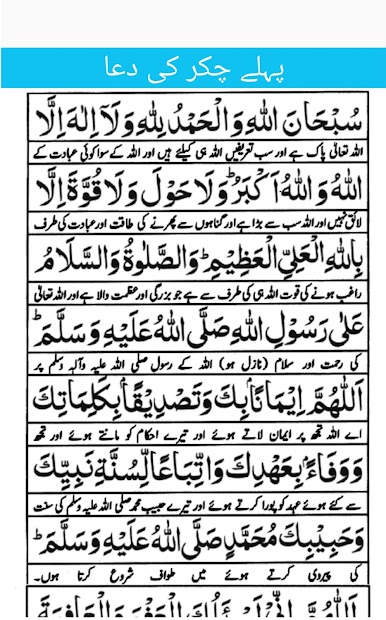 پہلے چکر کی دعا
سُبْحَانَ اللهِ وَالْحَمْدُ لِلّٰهِ وَلَآ اِلٰهَ اِلَّا
اللہ تعالیٰ پاک ہے اور سب تعریفیں اللہ ہی کیلئے ہیں اور اللہ کے سوا کوئی عبادت کے
اللهُ وَاللهُ اَكْبَرُ ؕ وَلَا حَوْلَ وَلَا قُوَّةَ اِلَّا
لائق نہیں اور اللہ سب سے بڑا ہے اور گناہوں سے پھرنے کی طاقت اور عبادت کی طرف
بِاللهِ الْعَلِيِّ الْعَظِيْمِ ؕ وَالصَّلٰوةُ وَالسَّلَامُ
راغب ہونے کی قوت اللہ ہی کی طرف سے ہے جو بزرگی اور عظمت والا ہے اور اللہ تعالیٰ
عَلٰى رَسُوْلِ اللهِ صَلَّى اللهُ عَلَيْهِ وَسَلَّمَ ؕ
کی رحمت اور سلام (نازل ہو) اللہ کے رسول صلی اللہ علیہ وآلہ وسلم پر
اَللّٰهُمَّ اِيْمَانًا بِكَ وَتَصْدِيْقًا بِكَلِمَاتِكَ
اے اللہ تجھ پر ایمان لاتے ہوئے اور تیرے احکام کو مانتے ہوئے اور تجھ
وَوَفَاءً بِعَهْدِكَ وَاتِّبَاعًا لِّسُنَّةِ نَبِيِّكَ
سے کئے ہوئے عہد کو پورا کرتے ہوئے اور تیرے حبیب محمد صلی اللہ علیہ وسلم کی سنت
وَحَبِيْبِكَ مُحَمَّدٍ صَلَّى اللهُ عَلَيْهِ وَسَلَّمَ ؕ
کی پیروی کرتے ہوئے میں طواف شروع کرتا ہوں۔
اَللّٰهُمَّ اِنِّيْ اَسْئَلُكَ الْعَفْوَ وَالْعَافِيَةَ